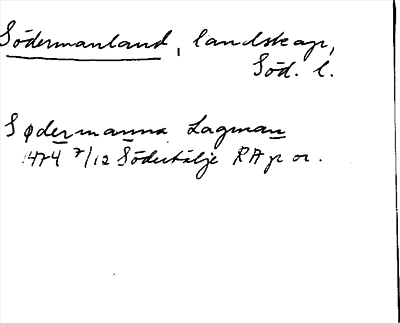 Södermanland, landskap,
Söd. l.
Sødermanna Lagman
1474 7/12 Södertälje RA p or.